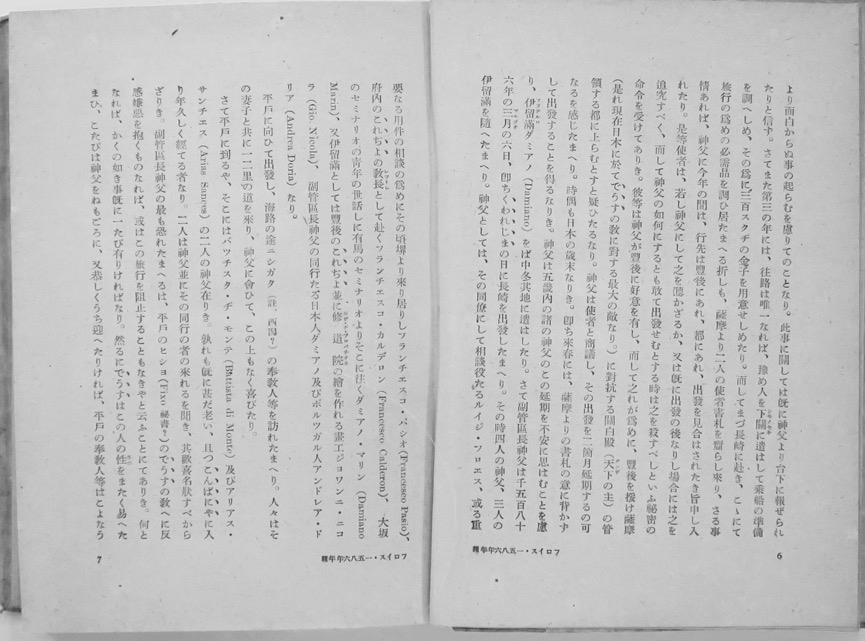 より面白からぬ事の起らむを慮りてのことなり。此事に關しては既に神父より台下に報ぜられ
たりと信ず。さてまた第三の年には、往路は唯一なれば、豫め人を下關に遣はして乘船の準備
を調へしめ、その爲に三百スクヂの金子を用意せしめたり。而してまづ長崎に赴き、こゝにて
旅行の爲めの必需品を調ひ居たまへる折しも、薩摩より二人の使者書札を齎らし來り、さる事
情あれば、神父に今年の間は、行先は豐後にあれ、都にあれ、出發を見合はされたき旨申し入
れたり。是等使者は、若し神父にして之を聽かざるか、又は既に出發の後なりし場合には之を
追究すべく、而して神父の如何にするとも敢て出發せむとする時は之を殺すべしといふ祕密の
命令を受けてありき。彼等は神父が豐後に好意を有し、而して之れが爲めに、豐後を援け薩摩
(是れ現在日本に於てでうすの敎に對する最大の敵なり。)に對抗する關白殿(天下の主)の管
領する都に上らむとすと疑ひたるなり。神父は使者と商議し、その出發を二箇月延期するの可
なるを感じたまへり。時偶も日本の歲末なりき。卽ち來春には、薩摩よりの書札の意に背かず
して出發することを得るなりき。神父は五畿內の諸の神父のこの延期を不安に思はむことを慮
り、伊留滿ダミアノ (Damiano) をば中冬其地に遣はしたり。さて副管區長神父は千五百八十
六年の三月の六日、卽ちくわれじまの日に長崎を出發したまへり。その時四人の神父、三人の
伊留滿を隨へたまへり。神父としては、その同僚にして相談役たるルイジ・フロエス、或る重
フロイス・一五八六年年報
6
要なる用件の相談の爲めにその頃堺より來り居りしフランチエスコ・パシオ(Francesco Pasio)、大坂
府內のこれぢよの敎長として赴くフランチエスコ・カルデロン (Francesco Calderon)、
のセミナリオの靑年の世話しに有馬のセミナリオよりそこに往くダミアノ・マリン (Damiano
Marin)、又伊留滿としては豐後のこれぢよ並に修道院の繪を作れる畫工ジョワンニ・ニコ
ラ (Gio. Nicola)、副管區長神父の同行たる日本人ダミアノ及びポルツガル人アンドレア・ド
リア (Andrea Doria) なり。
平戶に向ひて出發し、海路の途ニシガタ (註、西潟?) の奉敎人等を訪れたまへり。人々はそ
の妻子と共に一二里の道を來り、神父に會ひて、この上もなく喜びたり。
さて平戶に到るや、そこにはバツチスタ・デ・モンテ (Battista di Monte) 及びアリアス・
サンチエス (Arias Sances) の二人の神父在りき。孰れも既に甚だ老い、且つこんぱにやに入
り年久しく經てる者なり。二人は神父並にその同行の者の來れるを聞き、其歡喜名狀すべから
ざりき。副管區長神父の最も恐れたまへるは、平戶のヒショ (Fixo 祕書?) のでうすの敎へに反
感嫌惡を抱くものなれば、或はこの旅行を阻止することもなきやと云ふことにてありき。何と
なれば、かくの如き事既に一たび有りければなり。然るにでうすはこの人の性をまたく易へた
まひ、こたびは神父をねもごろに、又恭しくうち迎へたりければ、平戶の奉敎人等はこよなう
フロイス・一五八六年年報
7